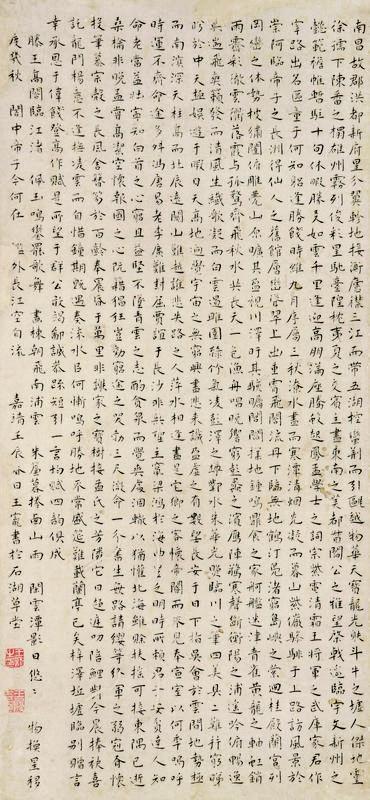 南昌故郡洪都新府星分翼軫地接衡廬襟三江而帶五湖控蠻荊而引甌越物華天寶龍光映斗牛之墟人傑地靈
徐孺下陳蕃之榻雄州霧列俊彩星馳臺隍枕夷夏之交賓主盡東南之美都督閻公之雅望棨戟遙臨宇文新州之
懿範襜帷暫駐十旬休暇勝友如雲千里逢迎高朋滿座騰蛟起鳳孟學士之詞宗紫電清霜王將軍之武庫家君作
宰路出名區童子何知躬逢勝餞時維九月序屬三秋潦水盡而寒潭清煙光凝而暮山紫儼驂騑於上路訪風景於
崇阿臨帝子之長洲得仙人之舊館層巒聳翠上出重霄飛閣流丹下臨無地鶴汀鳧渚窮島嶼之縈迴桂殿蘭宮列
岡巒之体勢披繡闥俯雕甍山原曠其盈視川澤盱其駭矚閭閻撲地鐘鳴鼎食之家舸艦迷津青雀黃龍之軸虹銷
雨霽彩徹雲衢落霞與孤鶩齊飛秋水共長天一色漁舟唱晚響窮彭蠡之濱鴈陣驚寒聲斷衡陽之浦遙吟俯暢逸
興遄飛爽籟發而清風生纖歌凝而白雲遏睢園綠竹氣凌彭澤之樽鄴水朱華光照臨川之筆四美具二難并窮睇
眄於中天極娛遊于暇日天高地迥覺宇宙之無窮興盡悲來識盈虛之有數望長安於日下指吳會於雲間地勢極
而南溟深天柱高而北辰遠關山難越誰悲失路之人萍水相逢盡是他鄉之客懷帝閽而不見奉宣室以何年嗚呼
時運不齊命途多舛馮唐易老李廣難封屈賈誼於長沙非無聖主竄梁鴻於海曲豈乏明時所賴君子安貧達人知
命老當益壯寧知白首之心窮且益堅不墜青雲之志酌貪泉而覺爽處涸轍以猶懽北海雖賒扶搖可接東隅已逝
桑榆非晚孟嘗高潔空懷報國之心阮籍猖狂豈效窮途之哭勃三尺微命一介書生無路請纓等終軍之弱冠有懷
投筆慕宗慤之長風舍簪笏於百齡奉晨昏於萬里非謝家之寶樹接孟氏之芳鄰他日趨庭叨陪鯉對今晨捧袂喜
託龍門楊意不逢撫凌雲而自惜鍾期既遇奏流水以何慚嗚呼勝地不常盛筵難再蘭亭已矣梓澤坵墟臨別贈言
幸承恩于偉餞登高作賦是所望于群公敢竭鄙誠恭疏短引一言均賦四韻俱成
滕王高閣臨江渚 佩玉鳴鸞罷歌舞 畫棟朝飛南浦雲 朱簾暮捲西山雨 閒雲潭影日悠悠 物換星移
度幾秋 閣中帝子今何在 檻外長江空自流 嘉靖壬辰日王寵書於石湖草堂